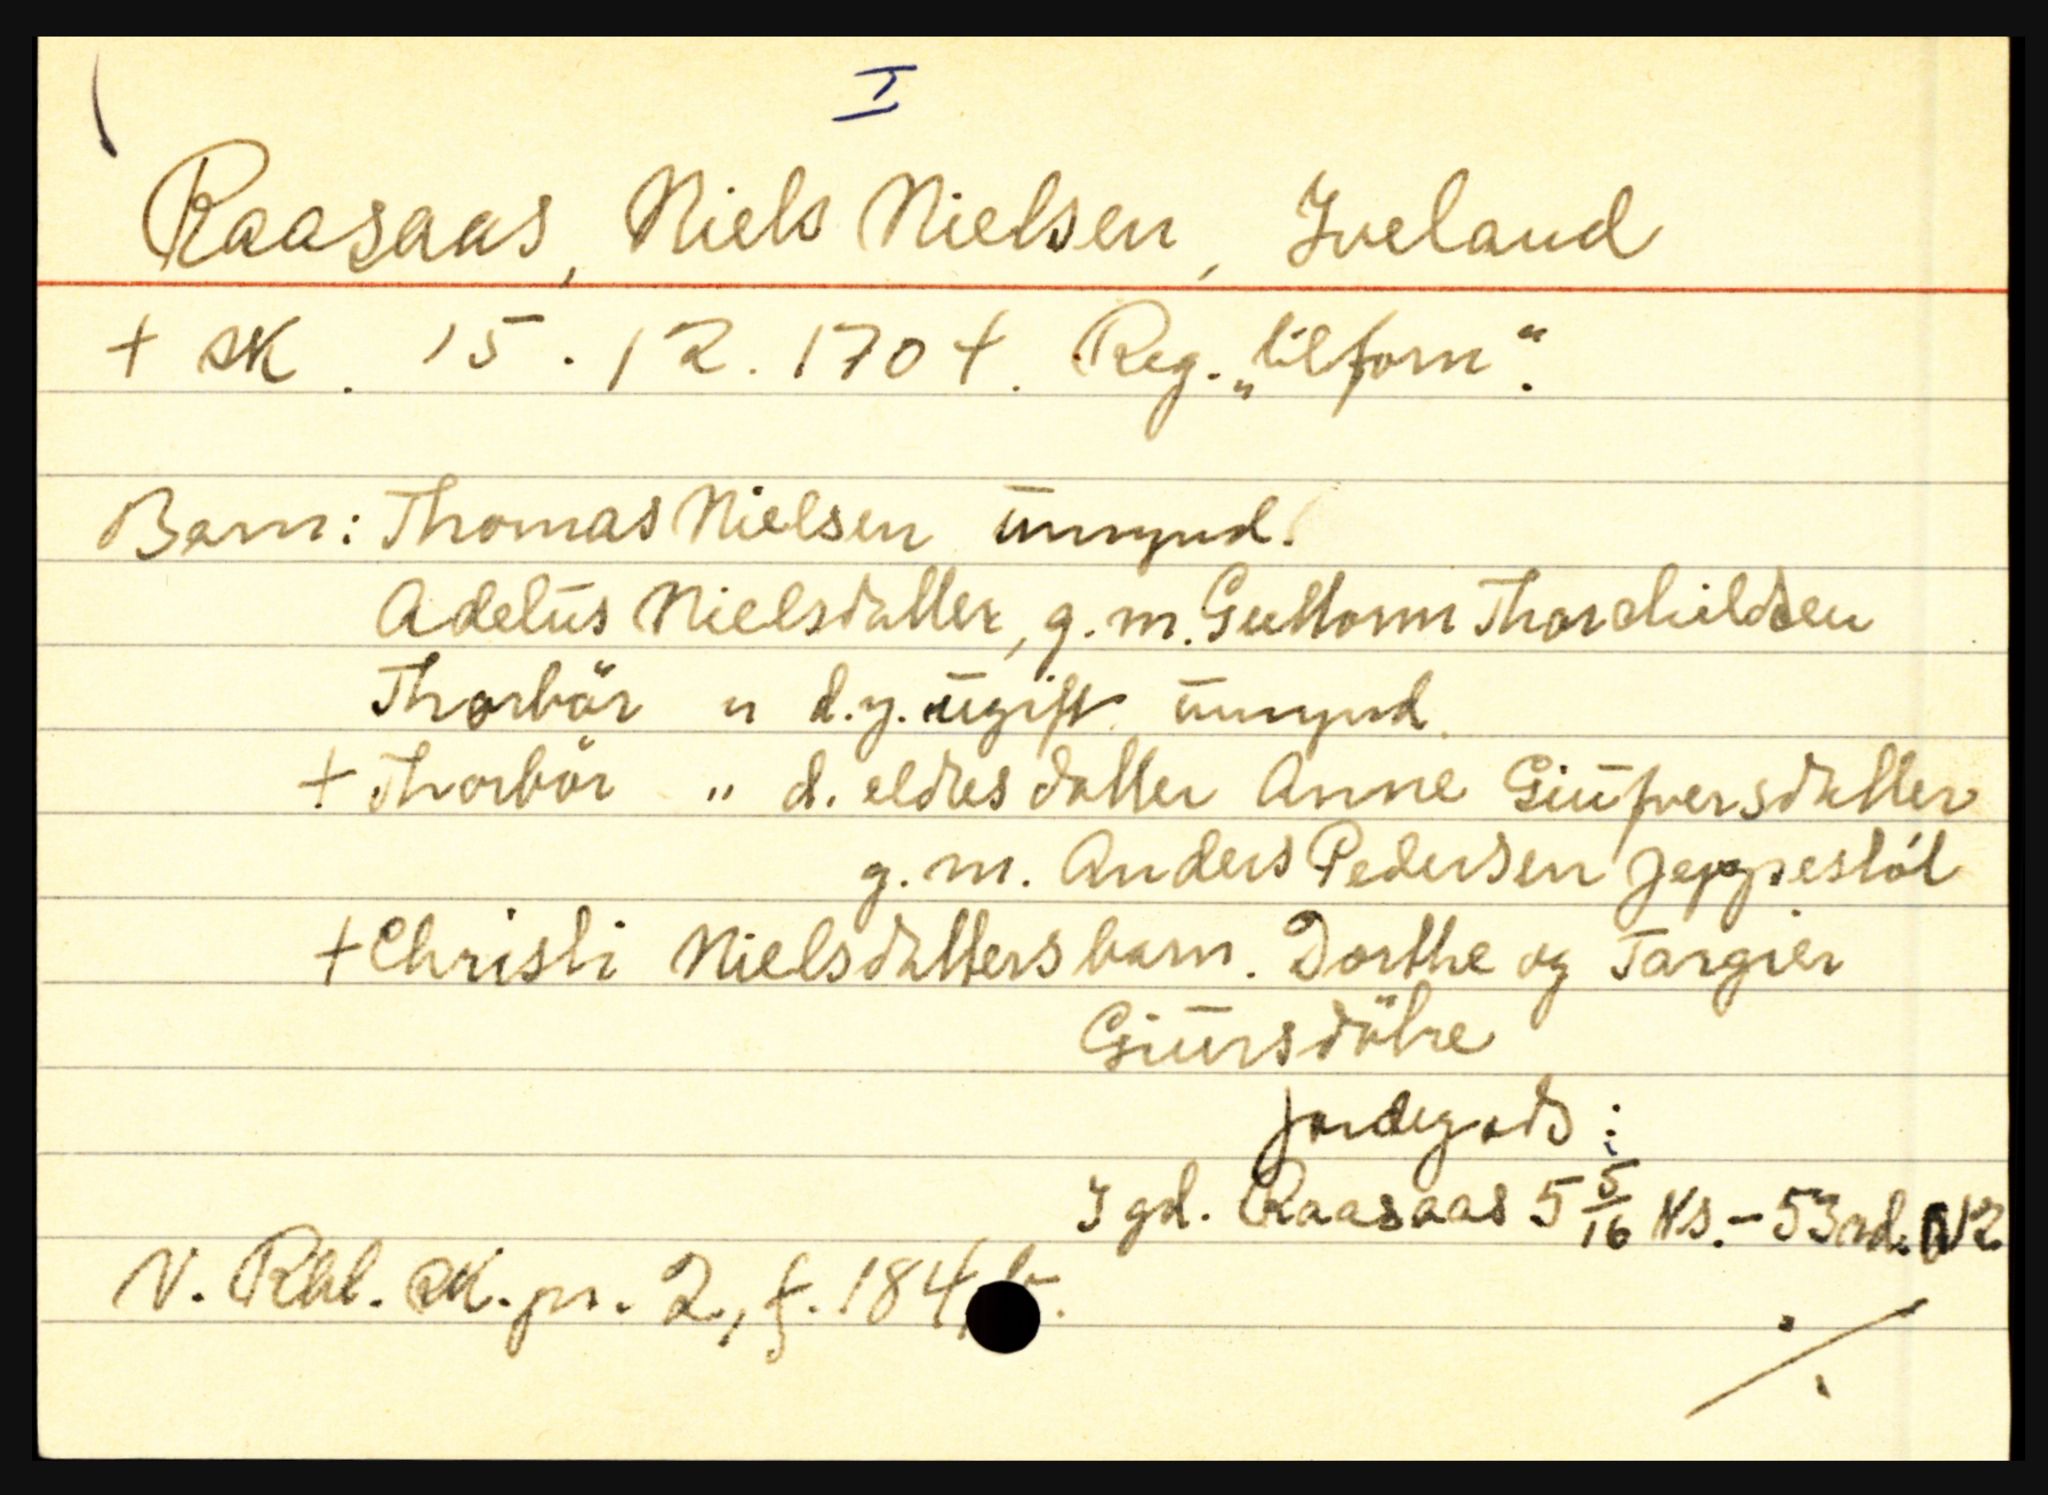 I
Raasaas, Niels Nielsen, Iveland
+ sk. 15.12.1704. Reg. „tilforn“.
Barn: Thomas Nielsen ūmynd.
Adelūs Nielsdatter, g.m. Guttorm Thorchildsen
Thorbör " d.y. ūgift ūmynd.
+ Thorbör " d. eldres datter Anne Giūfversdatter
g.m. Anders Pedersen Jeppestöl
+ Christi Nielsdatters barn. Dorthe og Targier
Giūrsdötre
Jordegods:
I gd. Raasaas 5 5/16 ks. - 53 rd.
N. Rbl. sk.pr. 2, f. 184 b.